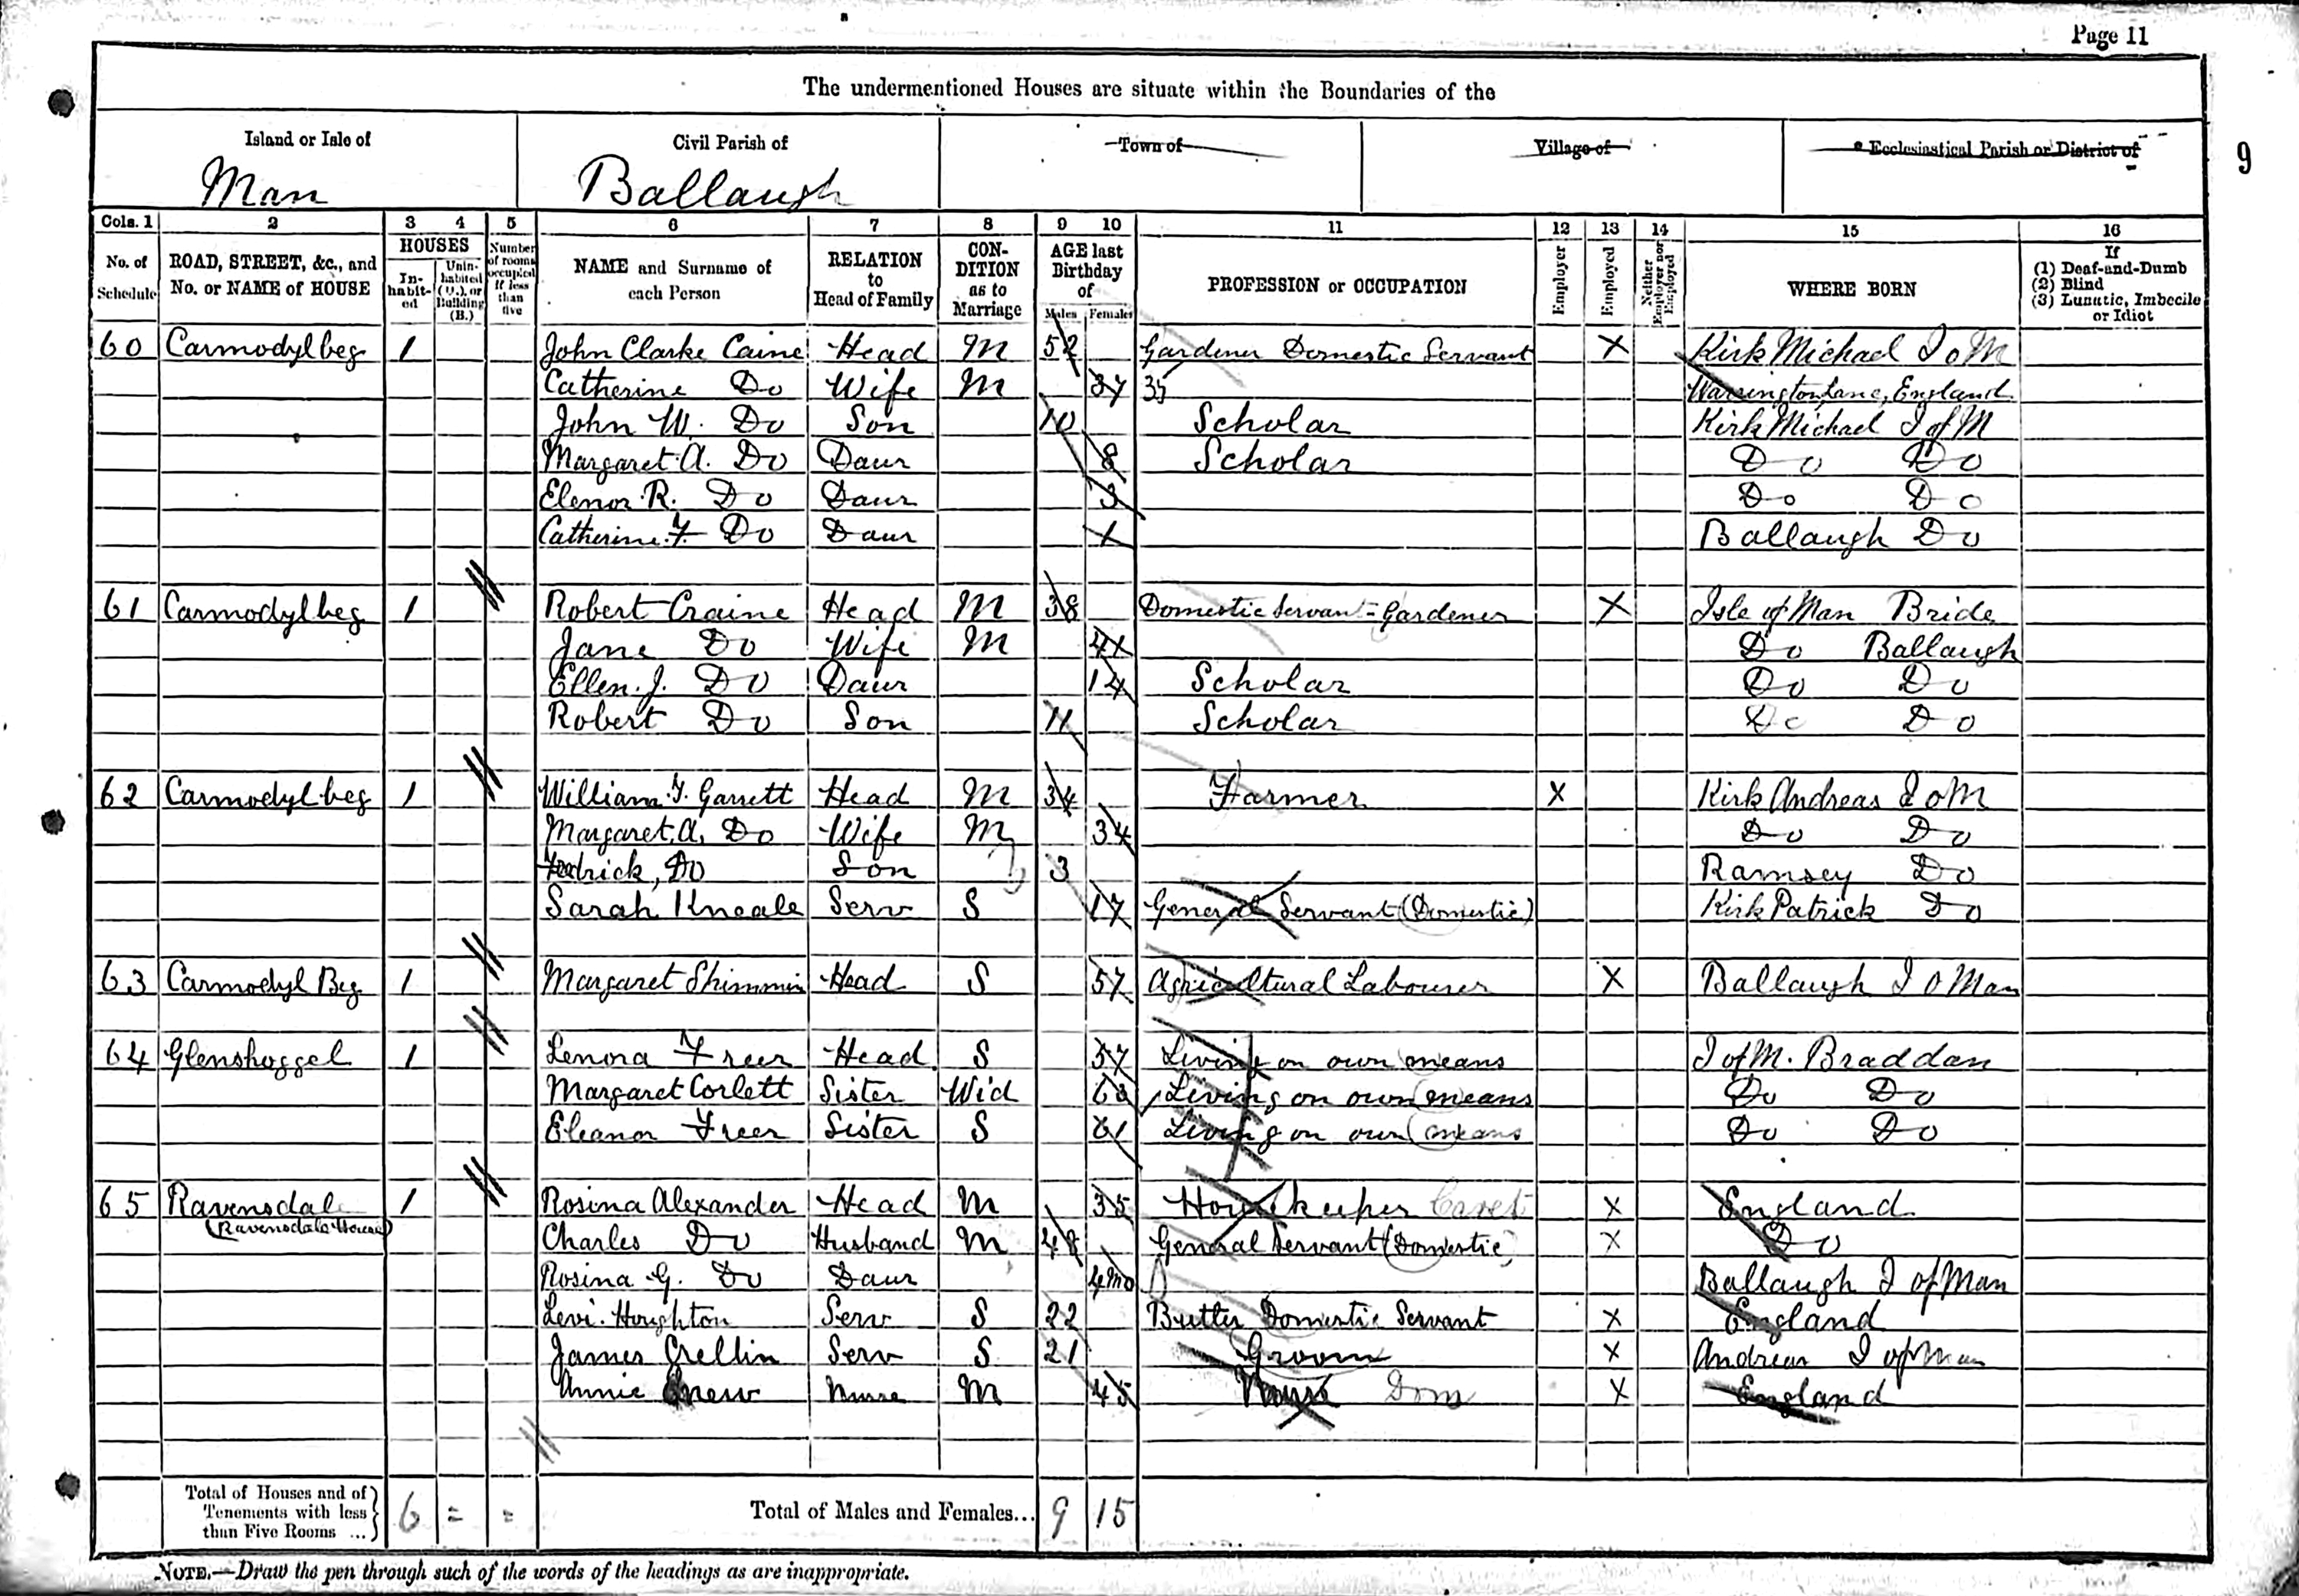 Page 11
The undermentioned Houses are situate within the Boundaries of the
Island or Isle of Civil Parish of Town of Village of Ecclesiastical Parish or District of
Man Ballaugh
9
Cols. 1 2 3 4 5 6 7 8 9 10 11 12 13 14 15 16
No. of Schedule ROAD, STREET, &c., and No. or NAME of HOUSE HOUSES In-habit-ed Unin-habited (U.), or Building (B.) Number of rooms occupied if less than five NAME and Surname of each Person RELATION to Head of Family CON-DITION as to Marriage AGE last Birthday of Males Females PROFESSION or OCCUPATION Employer Employed Neither Employer nor Employed WHERE BORN If (1) Deaf-and-Dumb (2) Blind (3) Lunatic, Imbecile or Idiot
60 Carmodylbeg 1 John Clarke Caine Head M 52 Gardener Domestic Servant X Kirk Michael I o M
Catherine Do Wife M 37 37 Warrington, Lanc, England
John W. Do Son 10 Scholar Kirk Michael I of M
Margaret A. Do Daur 8 Scholar Do Do
Elenor R. Do Daur 3 Do Do
Catherine F. Do Daur 1 Ballaugh Do
61 Carmodylbeg 1 Robert Craine Head M 38 Domestic Servant = Gardener X Isle of Man Bride
Jane Do Wife M 41 Do Ballaugh
Ellen J. Do Daur 14 Scholar Do Do
Robert Do Son 11 Scholar Do Do
62 Carmodyl beg 1 William F. Garrett Head M 34 Farmer X Kirk Andreas I o M
Margaret A. Do Wife M 34 Do Do
Fredrick, Do Son 3 Ramsey Do
Sarah Kneale Serv S 17 General Servant (Domestic) Kirk Patrick Do
63 Carmodyl Beg 1 Margaret Shimmin Head S 57 Agricultural Labourer X Ballaugh I O Man
64 Glenshoggel 1 Lenora Freer Head S 57 Living on own means I of M. Braddan
Margaret Corlett Sister Wid 63 Living on own means Do Do
Eleanor Freer Sister S 61 Living on own means Do Do
65 Ravensdale 1 Rosina Alexander Head M 35 Housekeeper X England
(Ravensdale House) Charles Do Husband M 48 General Servant (Domestic) X Do
Rosina G. Do Daur 4mo Ballaugh I of Man
Levi Houghton Serv S 22 Butler Domestic Servant X England
James Crellin Serv S 21 Groom X Andreas I of Man
Annie Nurse M 45 Nurse Dom X England
Total of Houses and of Tenements with less than Five Rooms ... 6 = = Total of Males and Females... 9 15
NOTE.—Draw the pen through such of the words of the headings as are inappropriate.